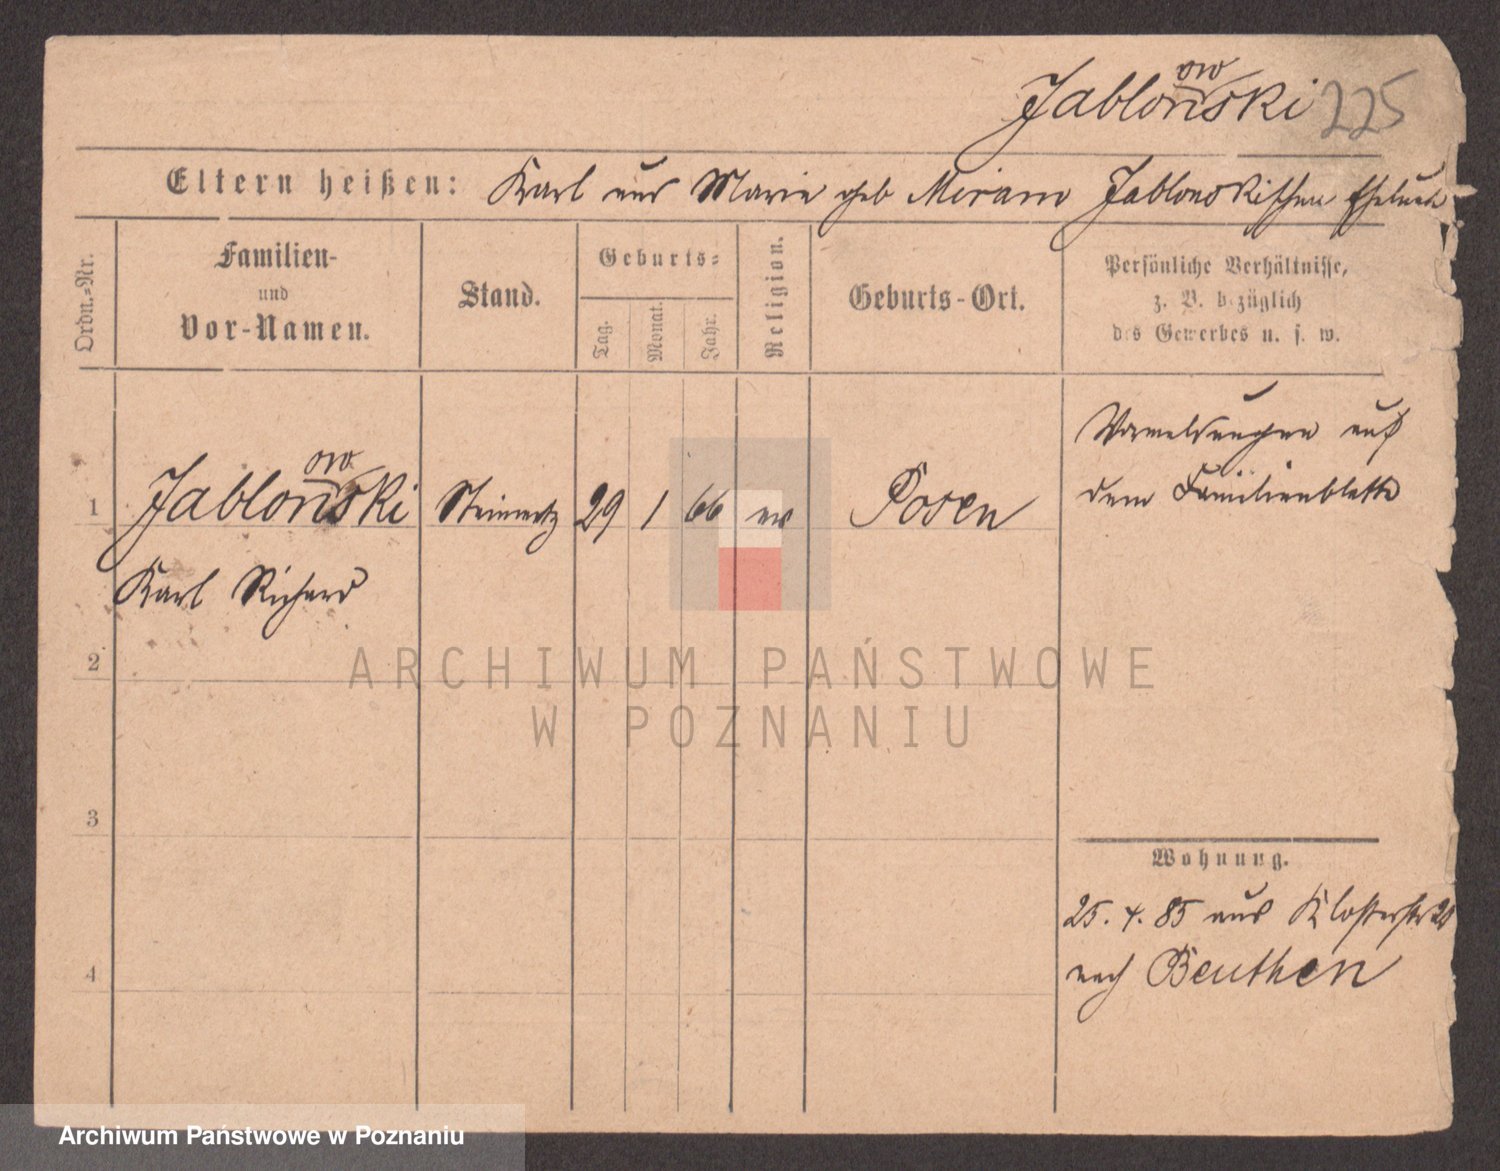 ow
Jablonski 225
Eltern heißen: Karl und Marie geb Miram Jablonskischen Eheleute
Ordn.-Nr.
Familien-
und
Vor-Namen.
Stand.
Geburts-
Tag.
Monat.
Jahr.
Religion.
Geburts-Ort.
Persönliche Verhältnisse,
z. B. bezüglich
des Gewerbes u. s. w.
ow
1 Jablonski Steinmetz 29 1 66 ev Posen
Karl Richard
Vormeldungen auf
dem Familienblatte
2
3
4
Wohnung.
25. 4. 85 aus Klosterstr
nach Beuthen
ARCHIWUM PAŃSTWOWE
W POZNANIU
Archiwum Państwowe w Poznaniu